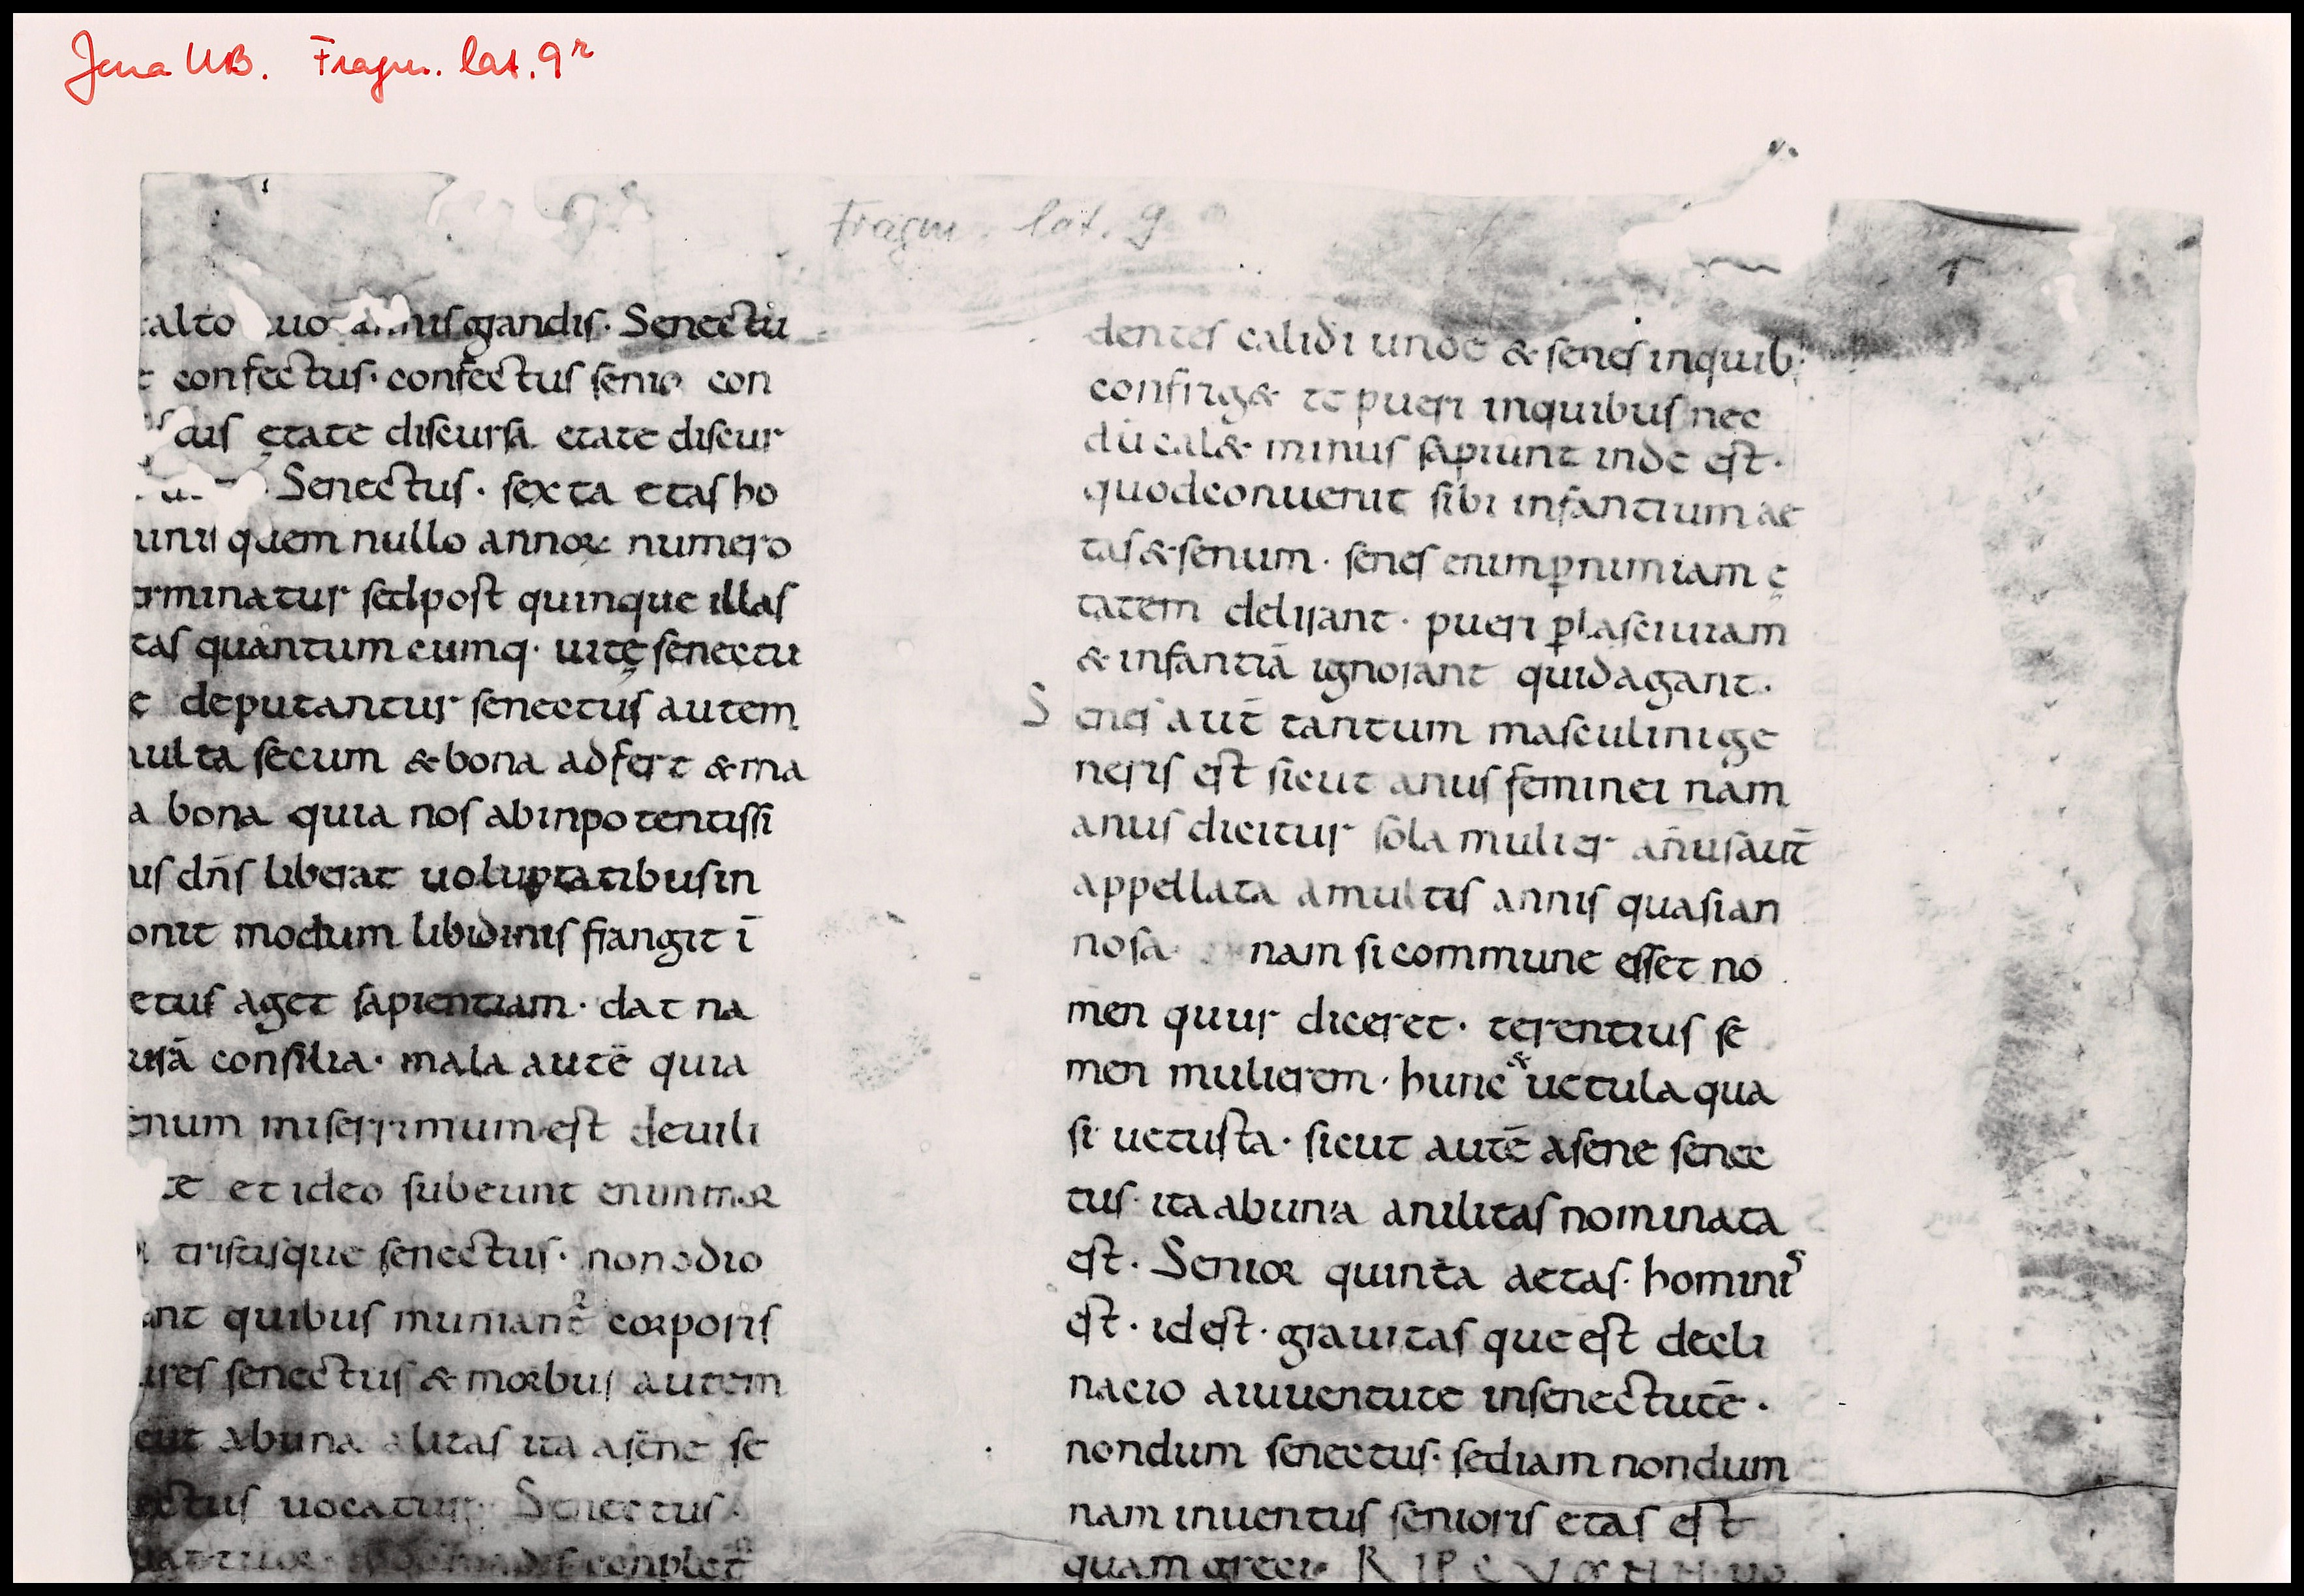 Jena UB. Fragm. lat. 9ʳ
Fragm. lat. 9
alto uo annis grandis. Senectu
confectus. confectus senio con
etate discursa etate discur
Senectus. sexta etas ho
quem nullo annoꝝ numero
erminatur sed post quinque illas
tas quantumcumq. uitę senectu
deputantur senectus autem
multa secum & bona adfert & ma
a bona quia nos ab inpotentissi
us dn̄s liberat uoluptatibus in
onit modum libidinis frangit ī
etus aget sapientiam. dat na
consilia. mala autē quia
enum miserrimum est deuili
et ideo subeunt
tristisque senectus. non odio
ant quibus corporis
ures senectus & morbus autem
ab una alitas ita a sene se
ectus uocatur. Senectus.
conplet
dentes calidi unde & senes in quib;
confrig& te pueri in quibus nec
dū cal& minus sapiunt inde est.
quod conuenit sibi infantium ae
tas & senum. senes enim ꝑ nimiam ę
tatem delirant. pueri ꝑ lasciuiam
& infantiā ignorant quid agant.
Senes aut̄ tantum masculini ge
neris est sicut anus feminei nam
anus dicitur sola mulier anus aut̄
appellata a multis annis quasi an
nosa nam si commune esset no
men quur diceret. terentius se
men mulierem. hunc & uetula qua
si uetusta. sicut autē a sene senec
tus. ita ab una anilitas nominata
est. Senior quinta aetas. hominis
est. id est. grauitas que est decli
nacio a iuuentute in senectutē.
nondum senectus. sed iam nondum
nam iuuentus senioris etas est
quam greci